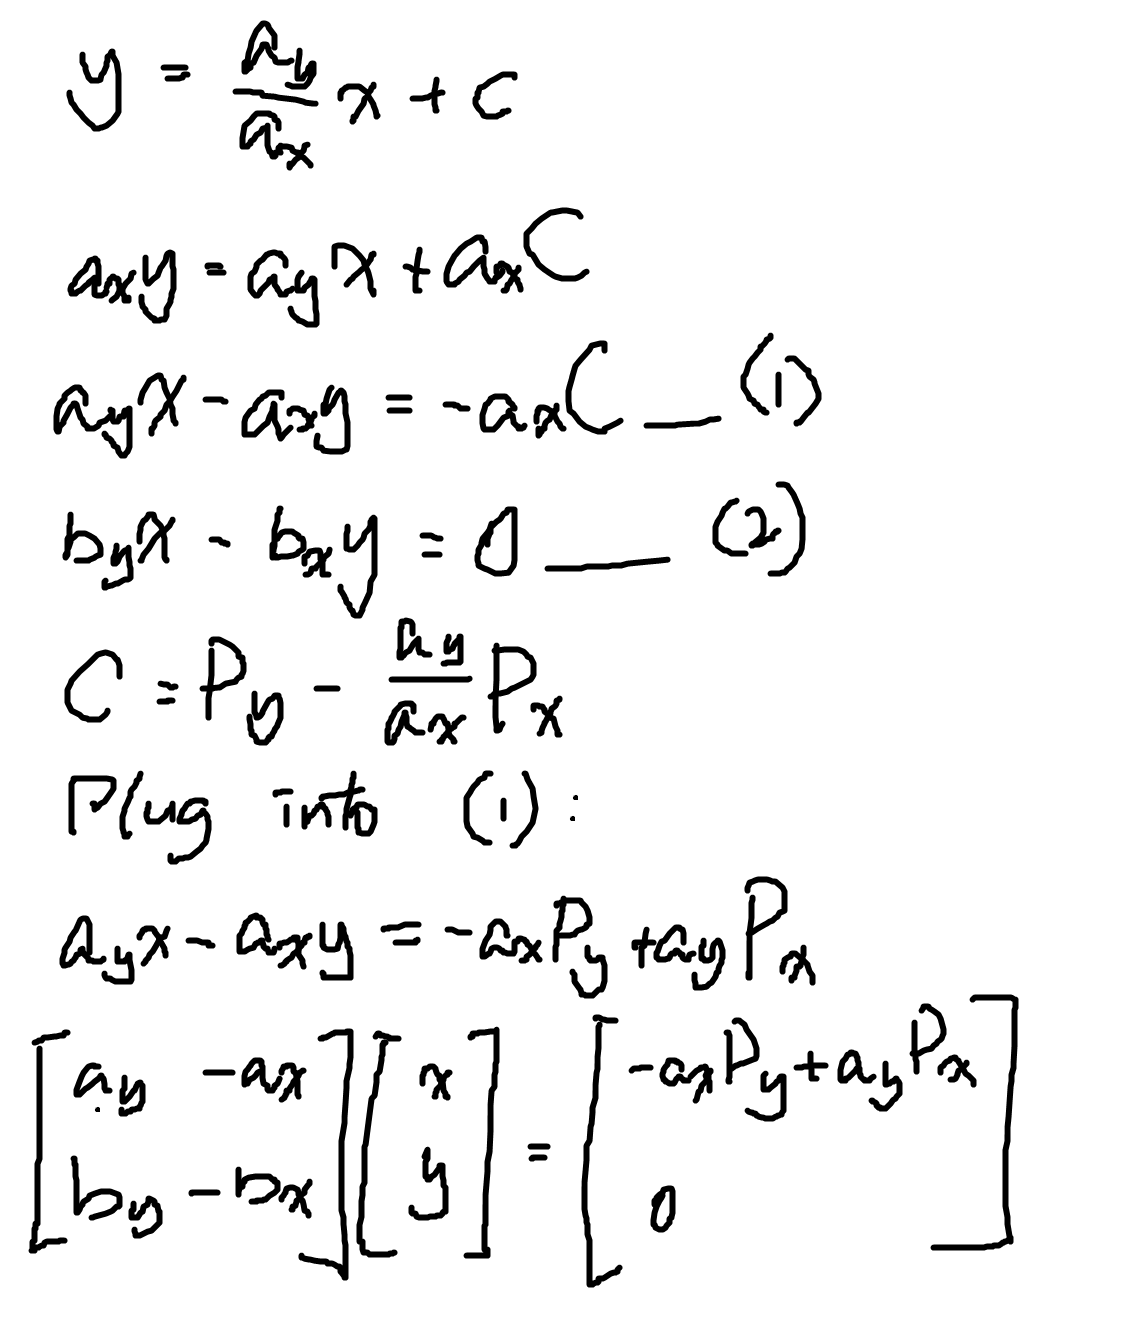 y = a_y/a_x x + c
a_x y = a_y x + a_x C
a_y x - a_x y = -a_x C __ (1)
b_y x - b_x y = 0 __ (2)
C = P_y - a_y/a_x P_x
Plug into (1) :
a_y x - a_x y = -a_x P_y + a_y P_x
[a_y -a_x; b_y -b_x] [x; y] = [-a_x P_y + a_y P_x; 0]